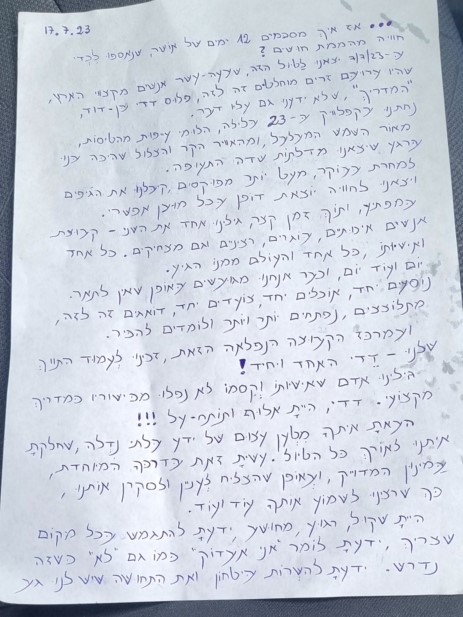 17.7.23
... אז איך מסכמים 12 ימים של אושר, שנאספו לכדי
חוויה מהממת חושים?
ב-7/7/23 יצאנו לטיול הזה, שבעה-עשר אנשים מקצווי הארץ,
שהיו ערירים זרים מוחלטים זה לזה, פלוס דדי בן-דוד,
"המדריך", שלא ידענו גם עליו דבר.
נחתנו בקפלוויק ב-23 בלילה, הלומי עייפות מהטיסות,
מאור השמש המבלבל, ומהאויר הקר והצלול שהיכה בנו
ברגע שיצאנו מדלתות שדה התעופה.
למחרת בבוקר, מעט יותר מפוקסים, קיבלנו את הג'יפים
ויצאנו לחוויה יוצאת דופן בכל מובן אפשרי.
במפתיע, ותוך זמן קצר, גילנו אחד את השני - קבוצת
אנשים איכותים, בוגרים, רצינים וגם מצחיקים. כל אחד
ואישיותו, כל אחד והעולם ממנו הגיע.
יום ועוד יום, וכבר אנחנו מגובשים באופן שאין לתאר.
נוסעים יחד, אוכלים יחד, צועדים יחד, דואגים זה לזה,
מתלוצצים, נפתחים יותר ויותר ולומדים להכיר.
ובמרכז הקבוצה הנפלאה הזאת, זכינו לעמוד התווך
שלנו - דדי האחד ויחיד!
גילינו אדם שאישיותו וקסמו לא נפלו מכישוריו כמדריך
מקצועי. דדי, היית אלוף ותותח-על !!!
הבאת איתך מטען עצום של ידע בלתי נדלה, שחלקת
איתנו לאורך כל הטיול. עשית זאת בדרכך המיוחדת,
במינון המדוייק, ובאופן שהצליח לעניין ולסקרן אותנו,
כך שרצינו לשמוע אותך עוד ועוד.
היית שקול, רגיע, מחושב, ידעת להתגמש בכל מקום
שצריך, ידעת לומר "אני אבדוק" כמו גם "לא" כשזה
נדרש. ידעת להשרות ביטחון ואת התחושה שיש לנו גב